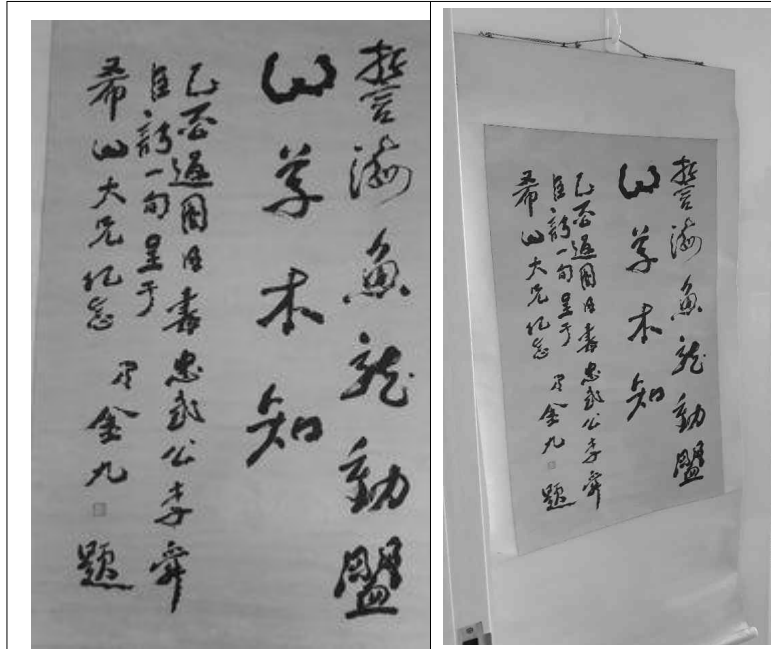 誓海魚龍動盟
山草木知
還國書忠武公李舜
臣詩一句呈于
希山大兄紀念
金九
題
誓海魚龍動盟
山草木知
還國書忠武公李舜
臣詩一句呈于
希山大兄紀念
金九
題